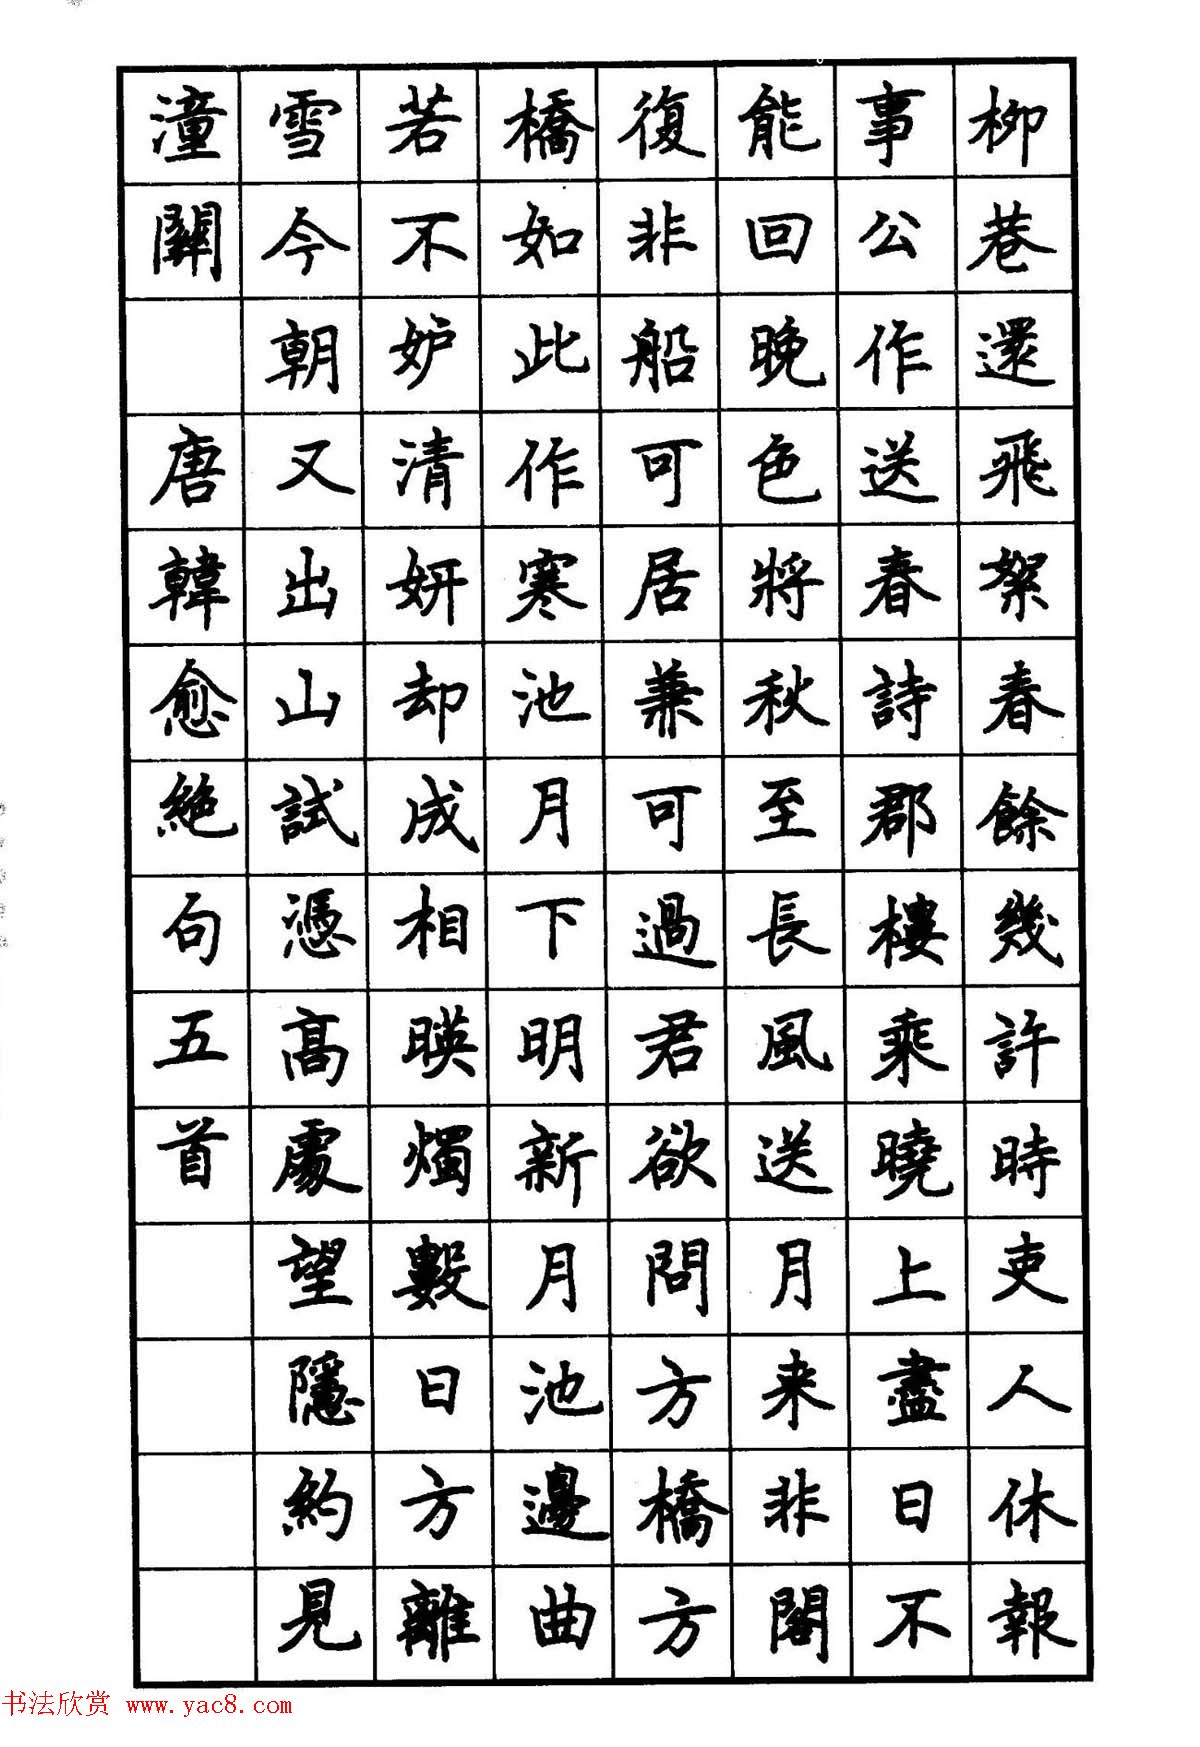 柳巷還飛絮春餘幾許時吏人休報
事公作送春詩郡樓乘曉上盡日不
能回晚色將秋至長風送月来非閣
復非船可居兼可過君欲問方橋方
橋如此作寒池月下明新月池邊曲
若不妒清妍却成相暎燭數日方離
雪今朝又出山試憑高處望隱約見
潼關 唐韓愈絶句五首
书法欣赏 www.yac8.com